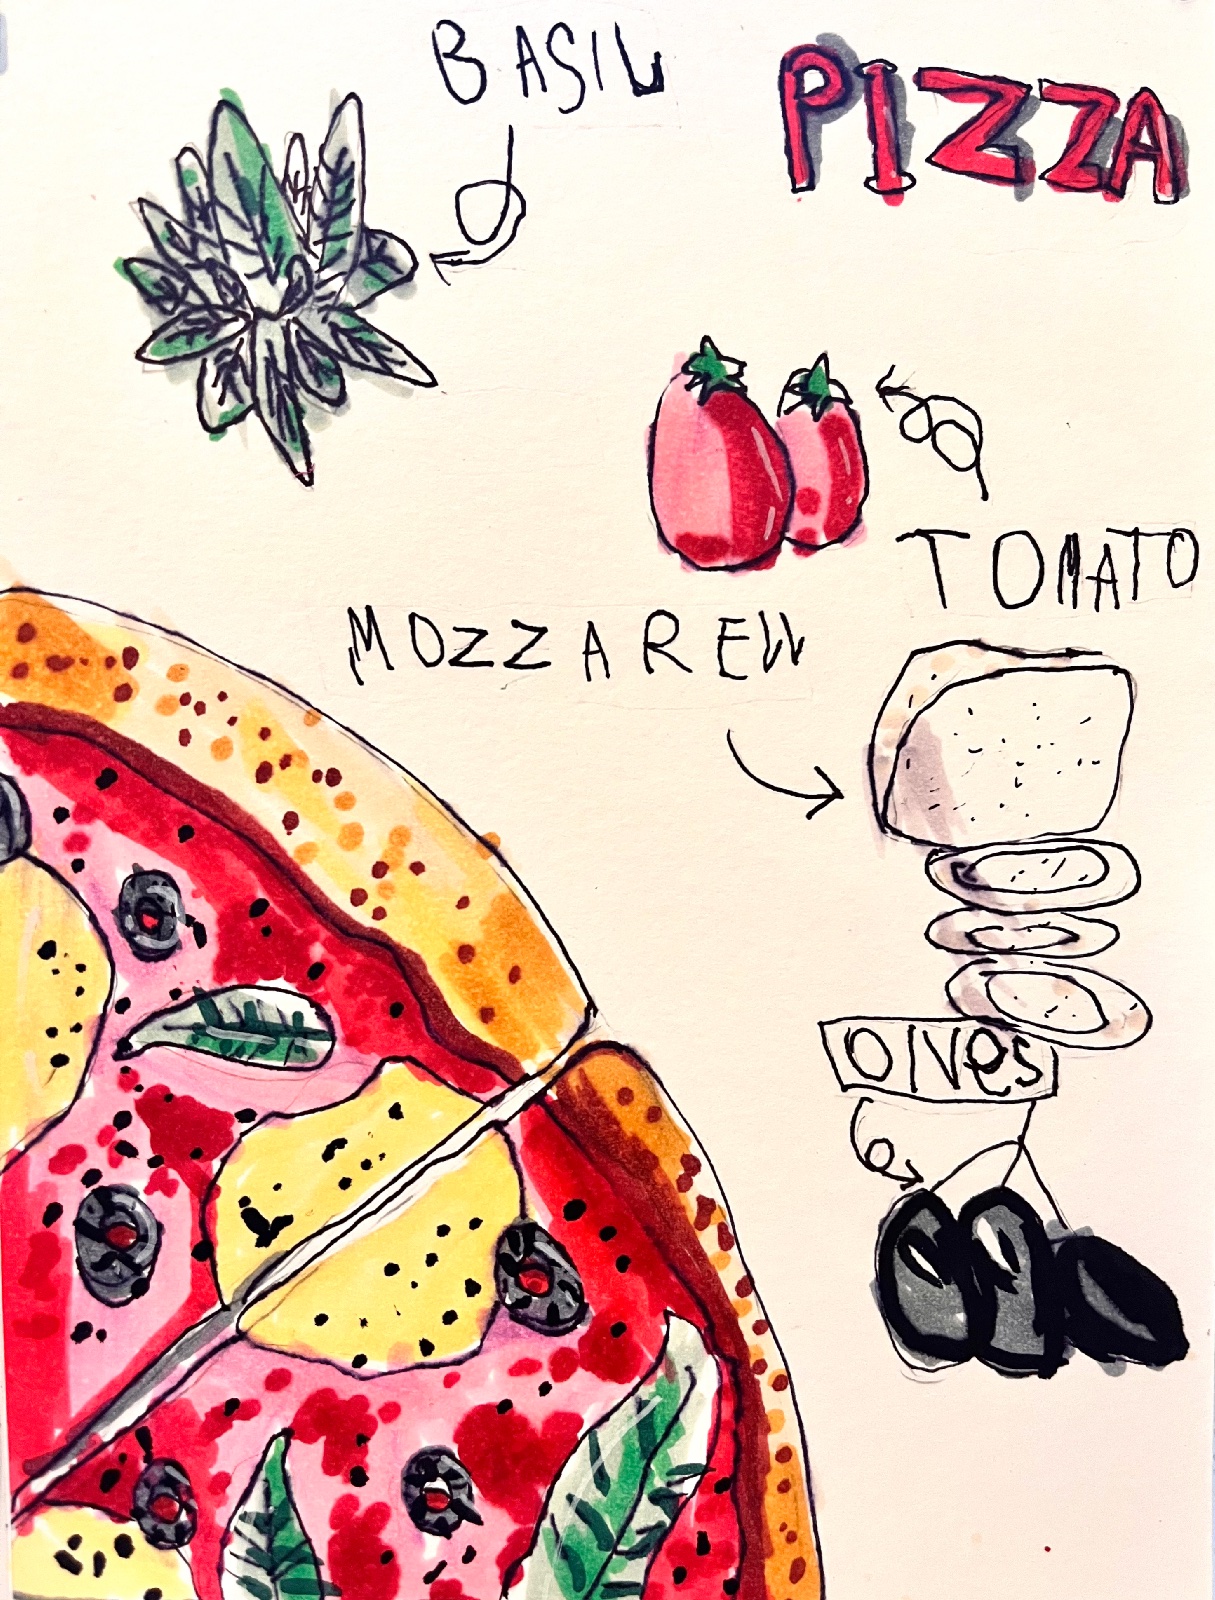 BASIL
PIZZA
TOMATO
MOZZARELL
OLIVES